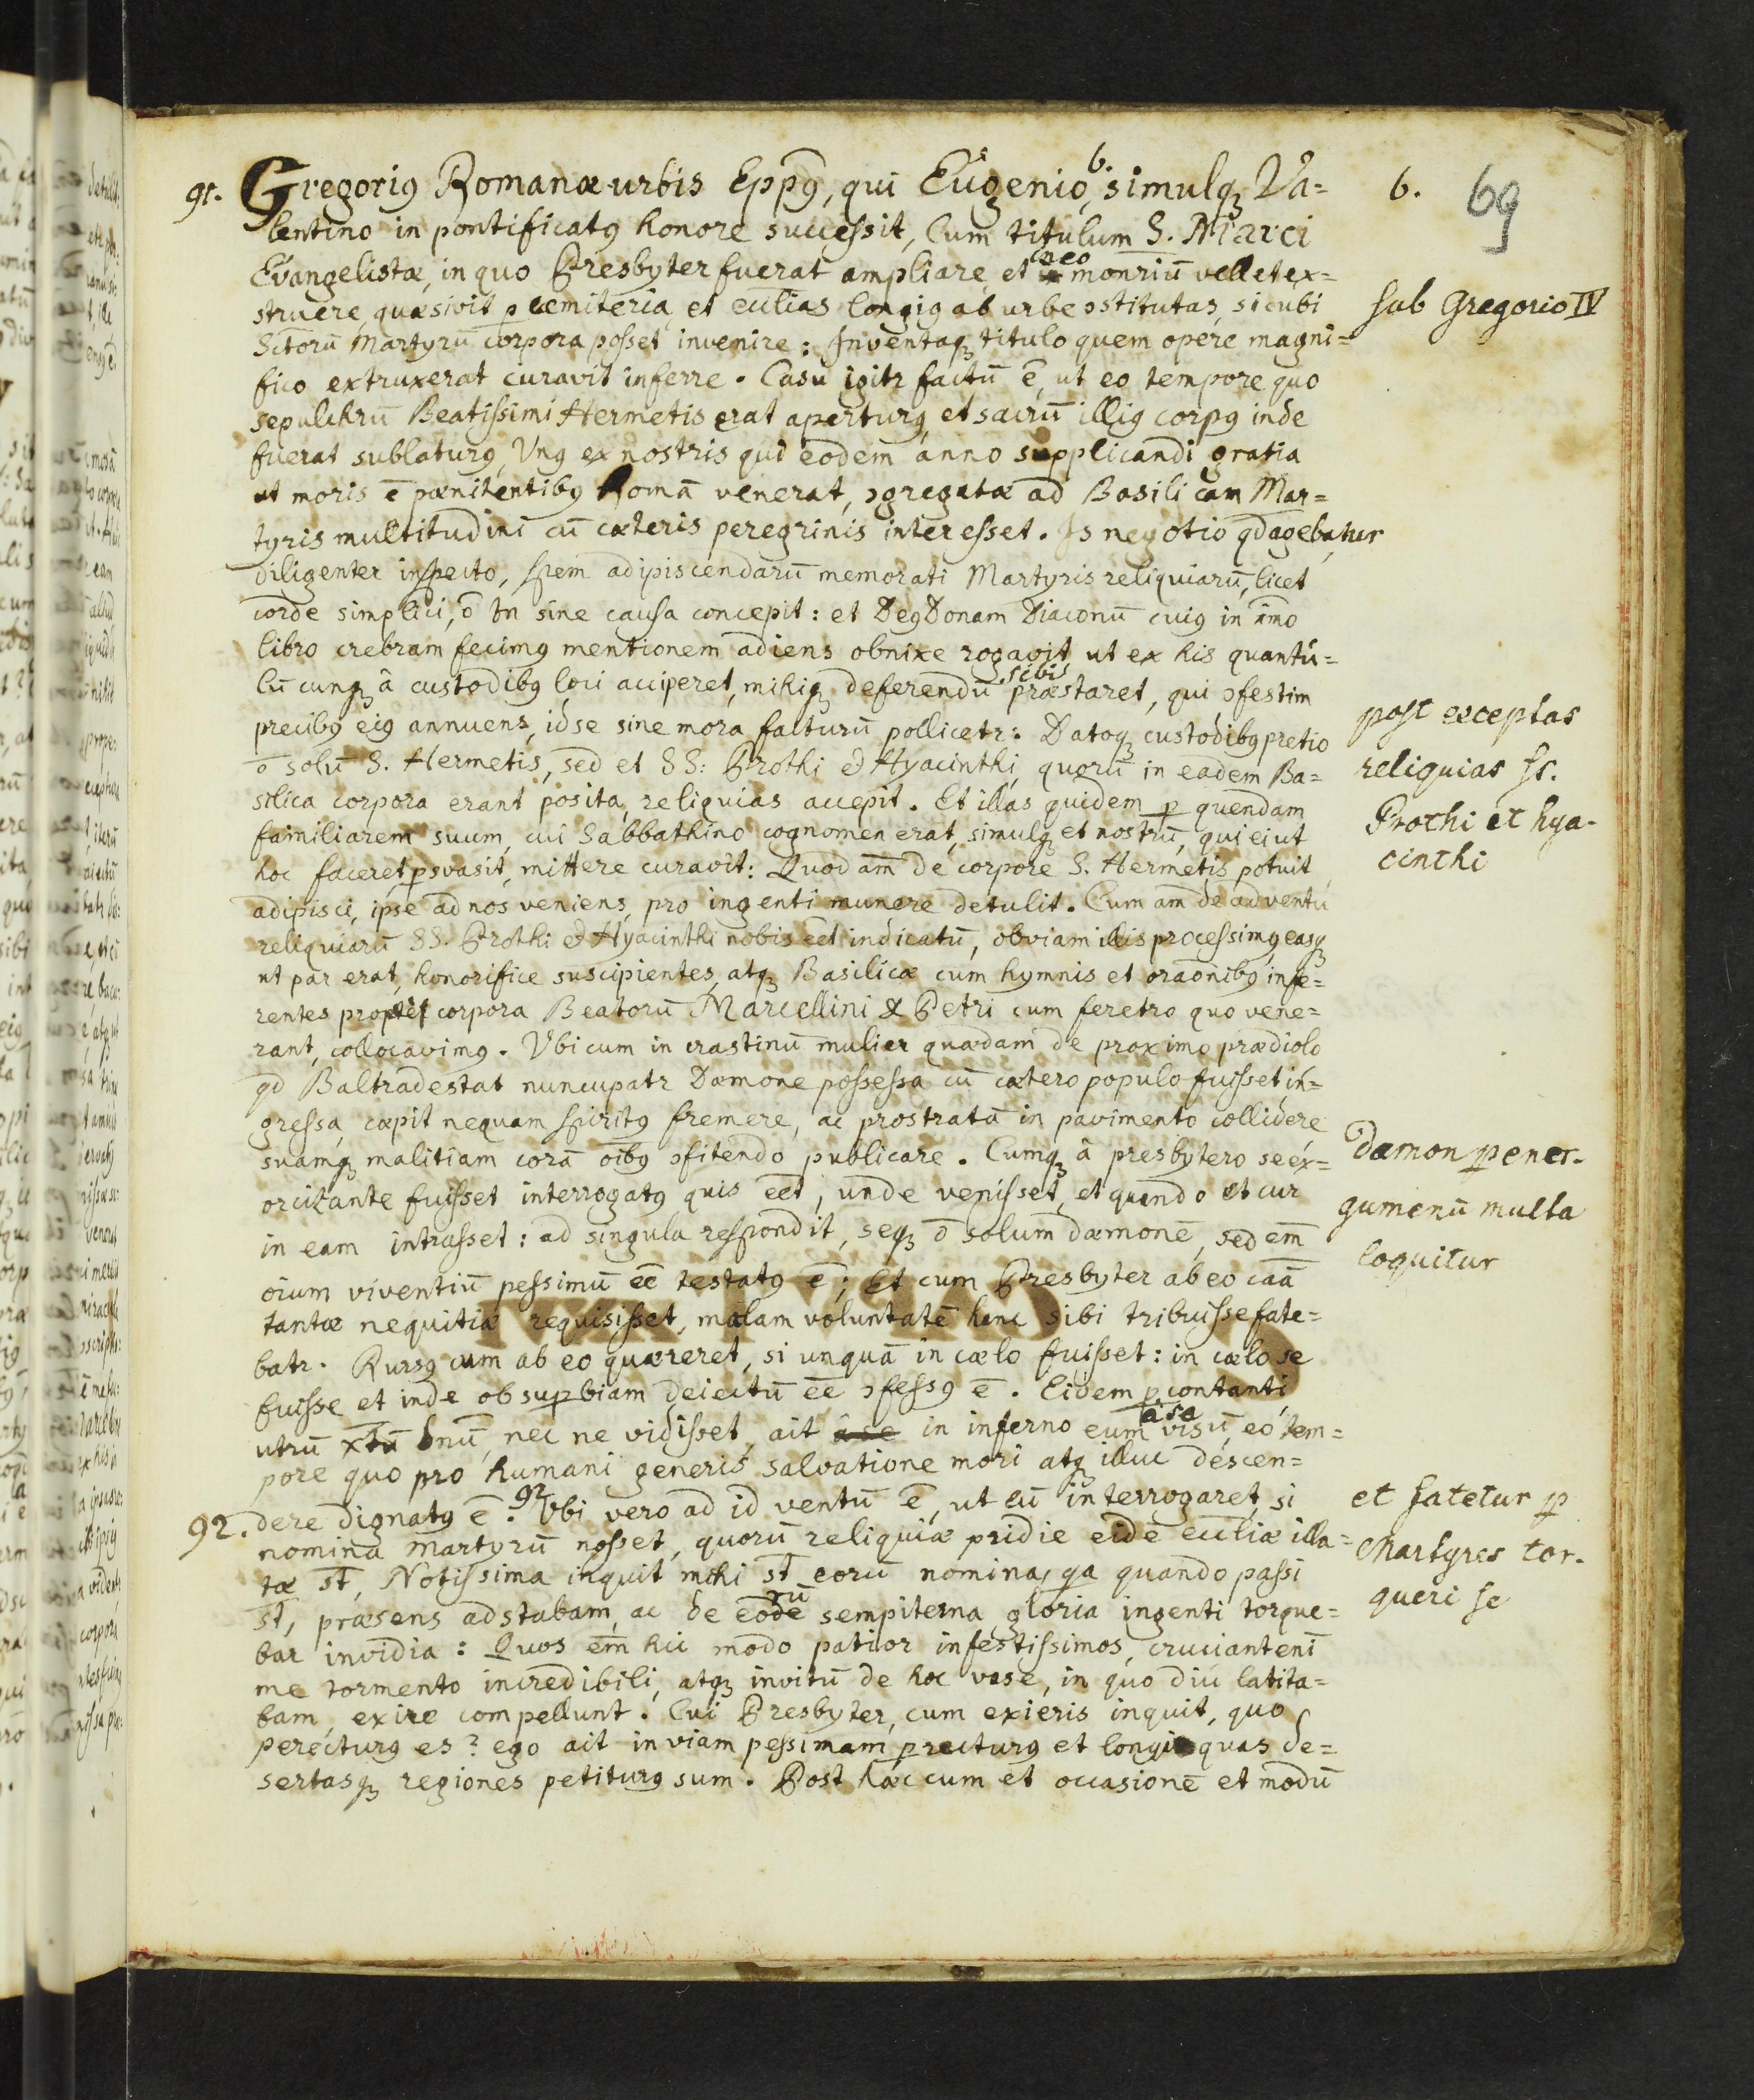 91. Gregorig Romanæ urbis Eppg, qui Eugenio, b. simulqꝫ Va=
b. 69
lentino in pontificatg honore successit, Cum titulum S. Marci
Evangelistæ, in quo Presbyter fuerat ampliare, et in eo monriū vellet ex=
struere, quæsivit p cæmiteria, et eccliās longig ab urbe ↄstitutas, sicubi
sub Gregorio IV
Sctorū Martyrū corpora posset invenire: Inventaqꝫ titulo quem opere magni=
fico extruxerat curavit inferre. Casu igitr factū ē, ut eo tempore quo
sepulchrū Beatissimi Hermetis erat aperturg, et sacrū illig corpg inde
fuerat sublaturg, Vng ex nostris qui eodem anno supplicandi gratia
ut moris ē pænitentibg Romā venerat, ↄgregatæ ad Basilicam Mar=
tyris multitudini cū cæteris peregrinis interesset. Is negotio qd agebatur
diligenter inspecto, spem adipiscendarū memorati Martyris reliquiarū, licet
corde simplici, ō tn sine causa concepit: et DegDonam Diaconū cuig in imo
libro crebram fecimg mentionem adiens obnixe rogavit, ut ex his quantú=
lū cunqꝫ â custodibg loci acciperet, mihiqꝫ deferendū sibi præstaret, qui ↄfestim
precibg eig annuens, id se sine mora facturū pollicetr: Datoqꝫ custodibg pretio
post exceptas
ō solū S. Hermetis, sed et SS: Prothi & Hyacinthi, quorū in eadem Ba=
reliquias ss.
silica corpora erant posita, reliquias accepit. Et illas quidem p quendam
Prothi et hya-
familiarem suum, cui Sabbathino cognomen erat, simulqꝫ et nostrū, qui ei ut
hoc faceret psvasit, mittere curavit: Quod am̄ de corpore S. Hermetis potuit
cinthi
adipisci, ipse ad nos veniens, pro ingenti munere detulit. Cum am̄ de adventu
reliquiarū SS. Prothi & Hyacinthi nobis eet indicatū, obviam illis processimg, easqꝫ
ut par erat, honorifice suscipientes, atqꝫ Basilicæ cum hymnis et oraonibg infe=
rentes propter corpora Beatorū Marcellini & Petri cum feretro quo vene=
rant, collocavimg. Vbi cum in crastinū mulier quædam de proximo prædiolo
qd Baltradestat nuncupatr Dæmone possessa cū cætero populo fuisset in=
gressa, cæpit nequam spiritg fremere, ac prostratā in pavimento collidere
suamqꝫ malitiam corā oibg ↄfitendo publicare. Cumqꝫ â presbytero se ex=
Dæmon p ener-
orcizante fuisset interrogatg quis eet, unde venisset, et quando et cur
gumenū multa
in eam intrasset: ad singula respondit, seqꝫ ō solum dæmonē, sed em̄
loquitur
oium viventiū pessimū eē testatg ē; Et cum Presbyter ab eo caā
tantæ nequitiæ requisisset, malam voluntatē hanc sibi tribuisse fate=
batr. Rursg cum ab eo quæreret, si unquā in cælo fuisset: in cælo se
fuisse et inde ob supbiam deiectū eē ↄfessg ē. Eidem pcontanti,
utrū xtū dnū, nec ne vidisset, ait â se in inferno eum â se visū, eo tem=
pore quo pro humani generis salvatione mori atqꝫ illuc descen=
dere dignatg ē. 92 Vbi vero ad id ventū ē, ut eū interrogaret, si
et fatetur p
92. nomina martyrū nosset, quorū reliquiæ pridie eidē eccliæ illa=
Martyres tor-
tæ st, Notissima inquit mihi st eorū nomina, qa quando passi
st, præsens adstabam, ac de eodē rū sempiterna gloria ingenti torque=
queri se
bar invidia: Quos em̄ hic modo patior infestissimos, crucianteni
me tormento incredibili, atqꝫ invitū de hoc vase, in quo diu latita=
bam, exire compellunt. Cui Presbyter, cum exieris inquit, quo
perecturg es? ego ait in viam pessimam precturg et longiquas de=
sertasqꝫ regiones petiturg sum. Post hæc cum et occasionē et modū